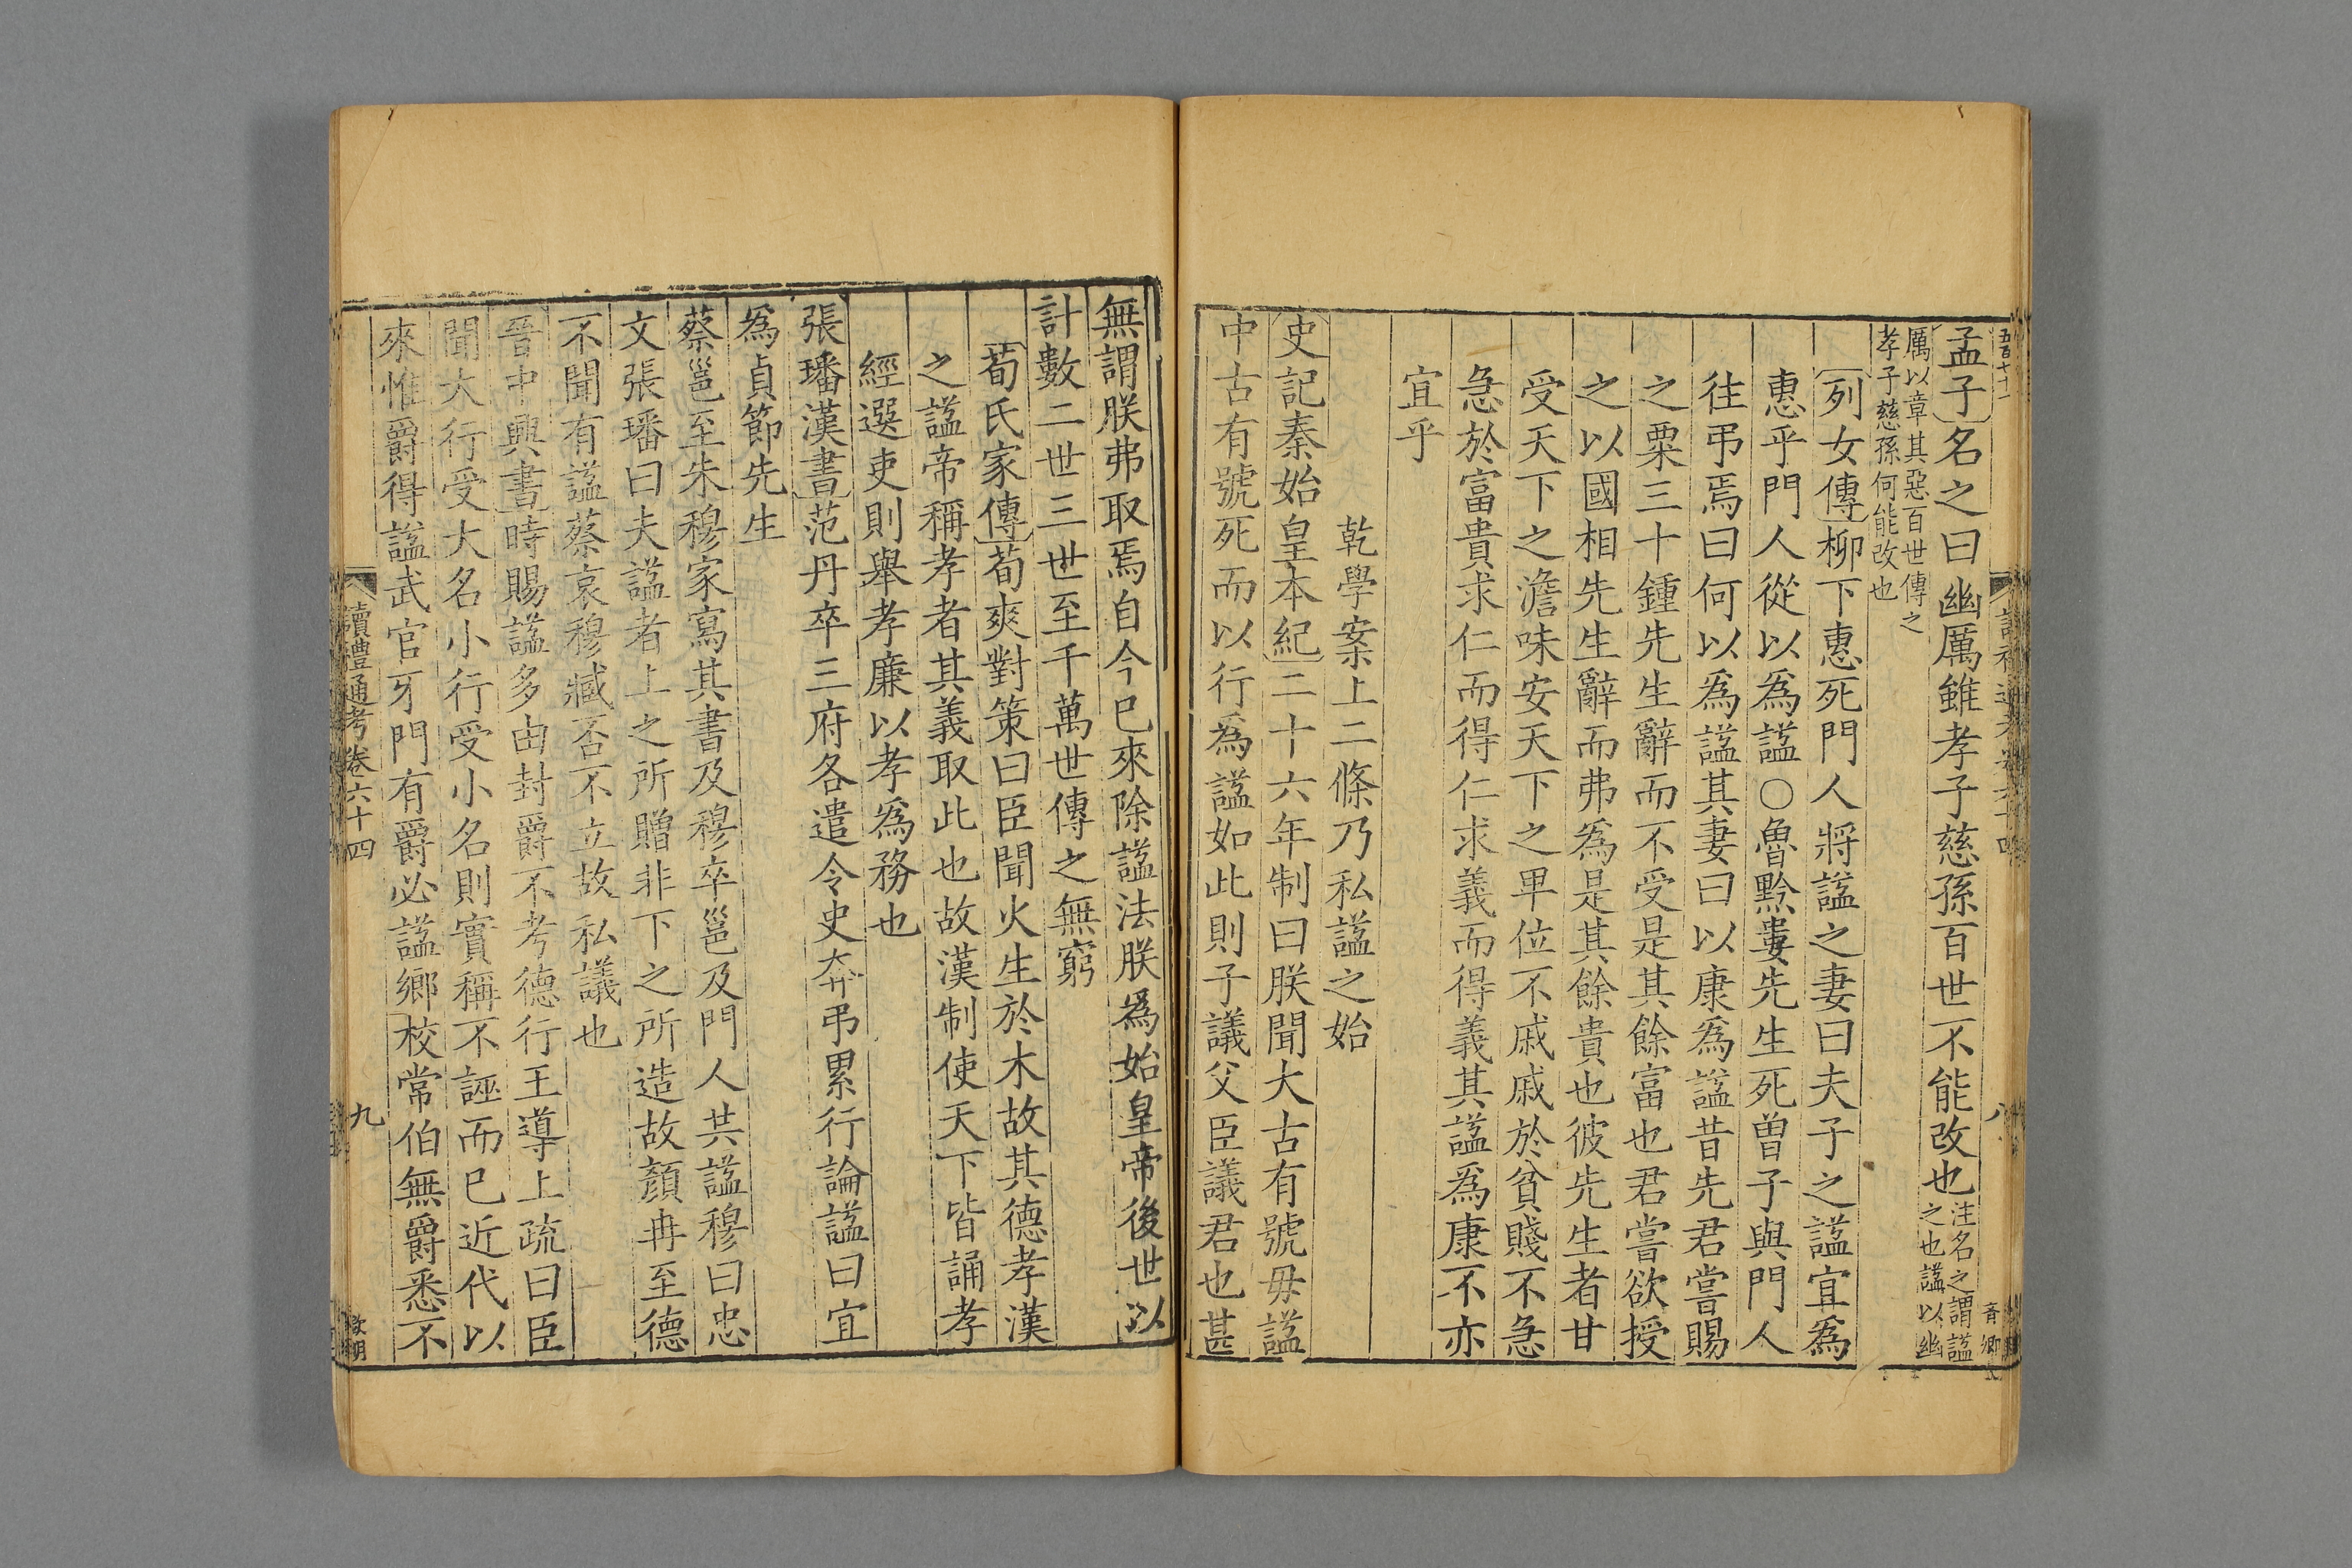 五百七十二
孟子名之曰幽厲雖孝子慈孫百世不能改也注名之謂謚
之也謚以幽
厲以章其惡百世傳之
孝子慈孫何能改也
列女傳柳下惠死門人將謚之妻曰夫子之謚宜爲
惠乎門人從以爲謚○魯黔婁先生死曾子與門人
往弔焉曰何以爲謚其妻曰以康爲謚昔先君嘗賜
之粟三十鍾先生辭而不受是其餘富也君嘗欲授
之以國相先生辭而弗爲是其餘貴也彼先生者甘
受天下之澹味安天下之畢位不戚戚於貧賤不急
急於富貴求仁而得仁求義而得義其謚爲康不亦
宜乎
乾學案上二條乃私謚之始
史記秦始皇本紀二十六年制曰朕聞大古有號毋謚
中古有號死而以行爲謚如此則子議父臣議君也甚
無謂朕弗取焉自今巳來除謚法朕爲始皇帝後世以
計數二世三世至千萬世傳之無窮
荀氏家傳荀爽對策曰臣聞火生於木故其德孝漢
之謚帝稱孝者其義取此也故漢制使天下皆誦孝
經選吏則舉孝廉以孝爲務也
張璠漢書范丹卒三府各遣令史奔弔累行論謚曰宜
爲貞節先生
蔡邕至朱穆家寫其書及穆卒邕及門人共謚穆曰忠
文張璠曰夫謚者上之所贈非下之所造故顏冉至德
不聞有謚蔡哀穆臧否不立故私議也
晉中興書時賜謚多由封爵不考德行王導上疏曰臣
聞大行受大名小行受小名則實稱不誣而巳近代以
來惟爵得謚武官牙門有爵必謚鄉校常伯無爵悉不
讀禮通考卷六十四
九